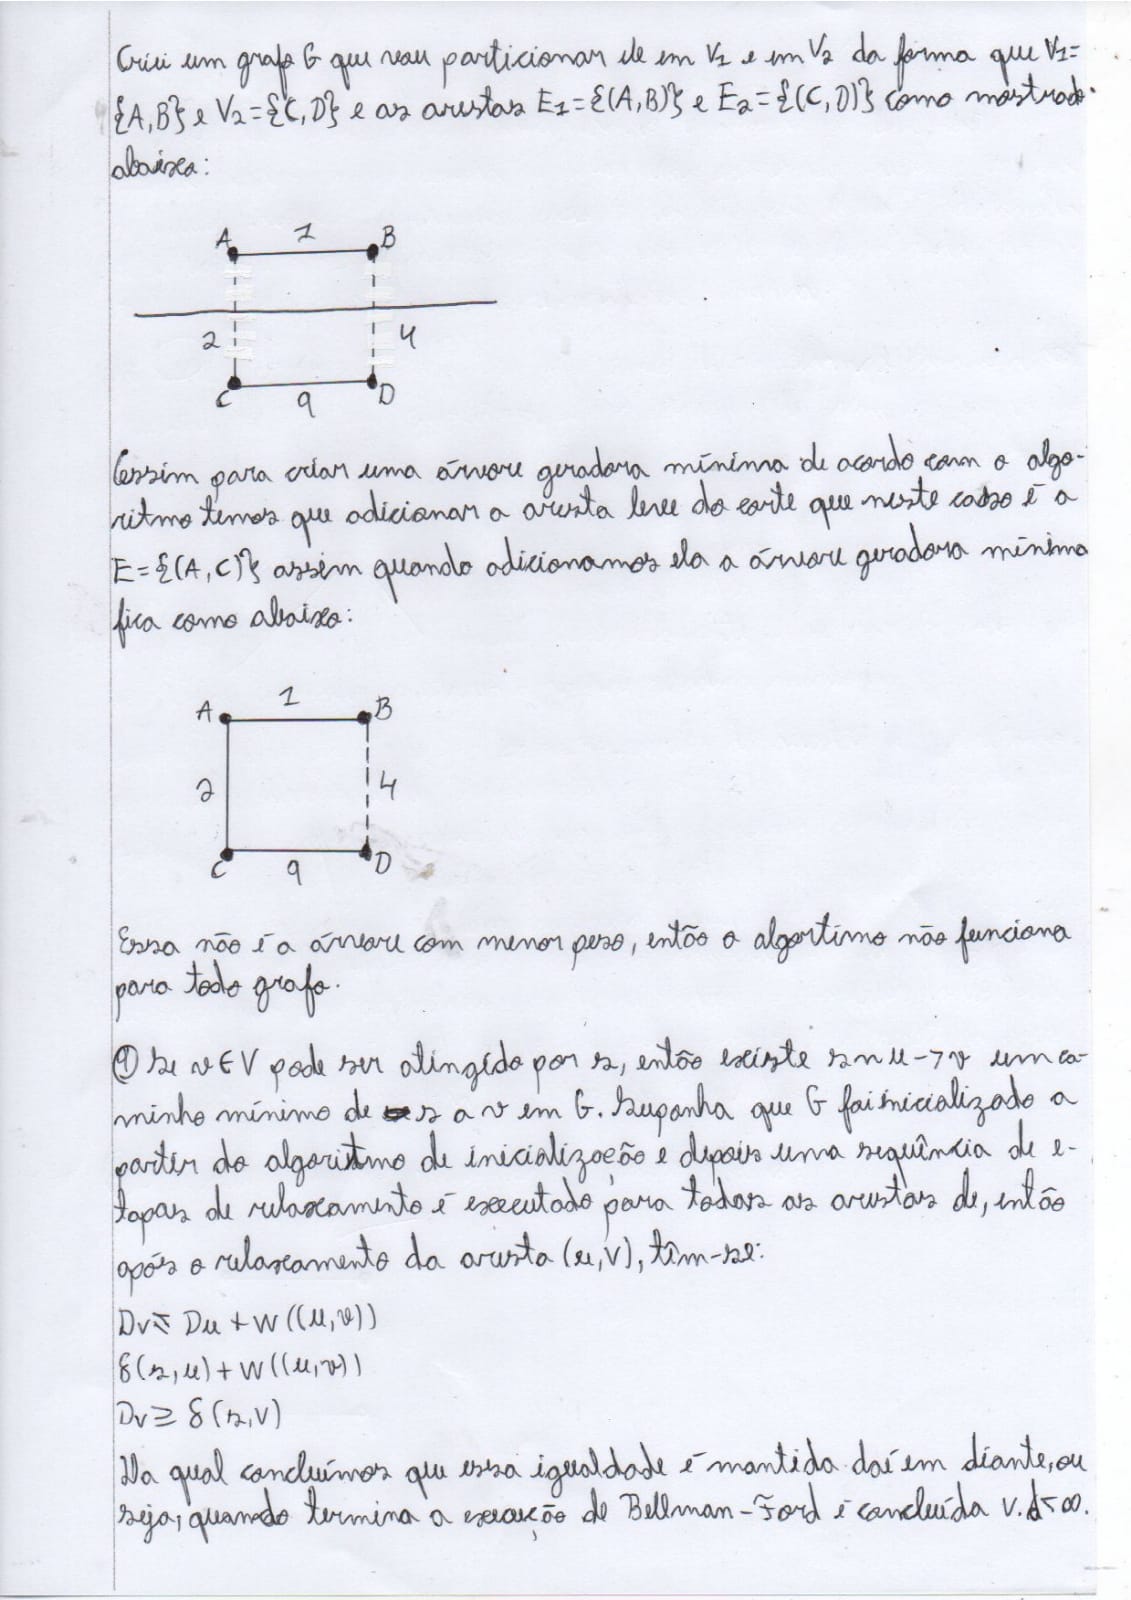 Criei um grafo G que vou particionar ele em V1 e em V2 da forma que V1=
{A,B} e V2={C,D} e as arestas E1={(A,B)} e E2={(C,D)} como mostrado
abaixo:
A 1 B
2 4
C 9 D
Assim para criar uma árvore geradora mínima de acordo com o algo-
ritmo temos que adicionar a aresta leve do corte que neste caso é a
E={(A,C)} assim quando adicionamos ela a árvore geradora mínima
fica como abaixo:
A 1 B
2 4
C 9 D
Essa não é a árvore com menor peso, então o algortimo não funciona
para todo grafo.
9) Se v∈V pode ser atingido por s, então existe s~u->v um ca-
minho mínimo de s a v em G. Suponha que G foi inicializado a
partir do algoritmo de inicialização e depois uma sequência de e-
tapas de relaxamento é executado para todas as arestas de, então
após o relaxamento da aresta (u,v), têm-se:
Dv≤ Du + W((u,v))
δ(s,u)+W((u,v))
Dv≥ δ(s,v)
Na qual concluímos que essa igualdade é mantida daí em diante, ou
seja, quando termina a execução de Bellman-Ford é concluída v.d<∞.